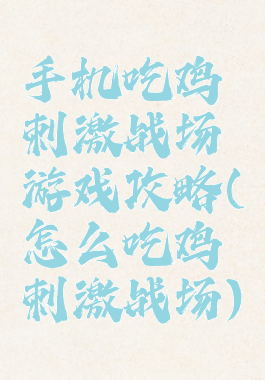 手机吃鸡
刺激战场
游戏攻略(
怎么吃鸡
刺激战场)